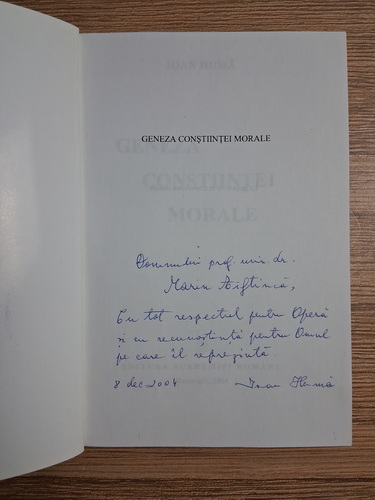 IOAN HUMĂ
GENEZA CONȘTIINȚEI MORALE
GENEZA
CONȘTIINȚEI
MORALE
Domnului prof. univ. dr.
Marin Aiftincă,
Cu tot respectul pentru Operă
și cu recunoștință pentru Omul
pe care îl reprezintă.
EDITURA ACADEMIEI ROMÂNE
8 dec. 2004 Ioan Humă